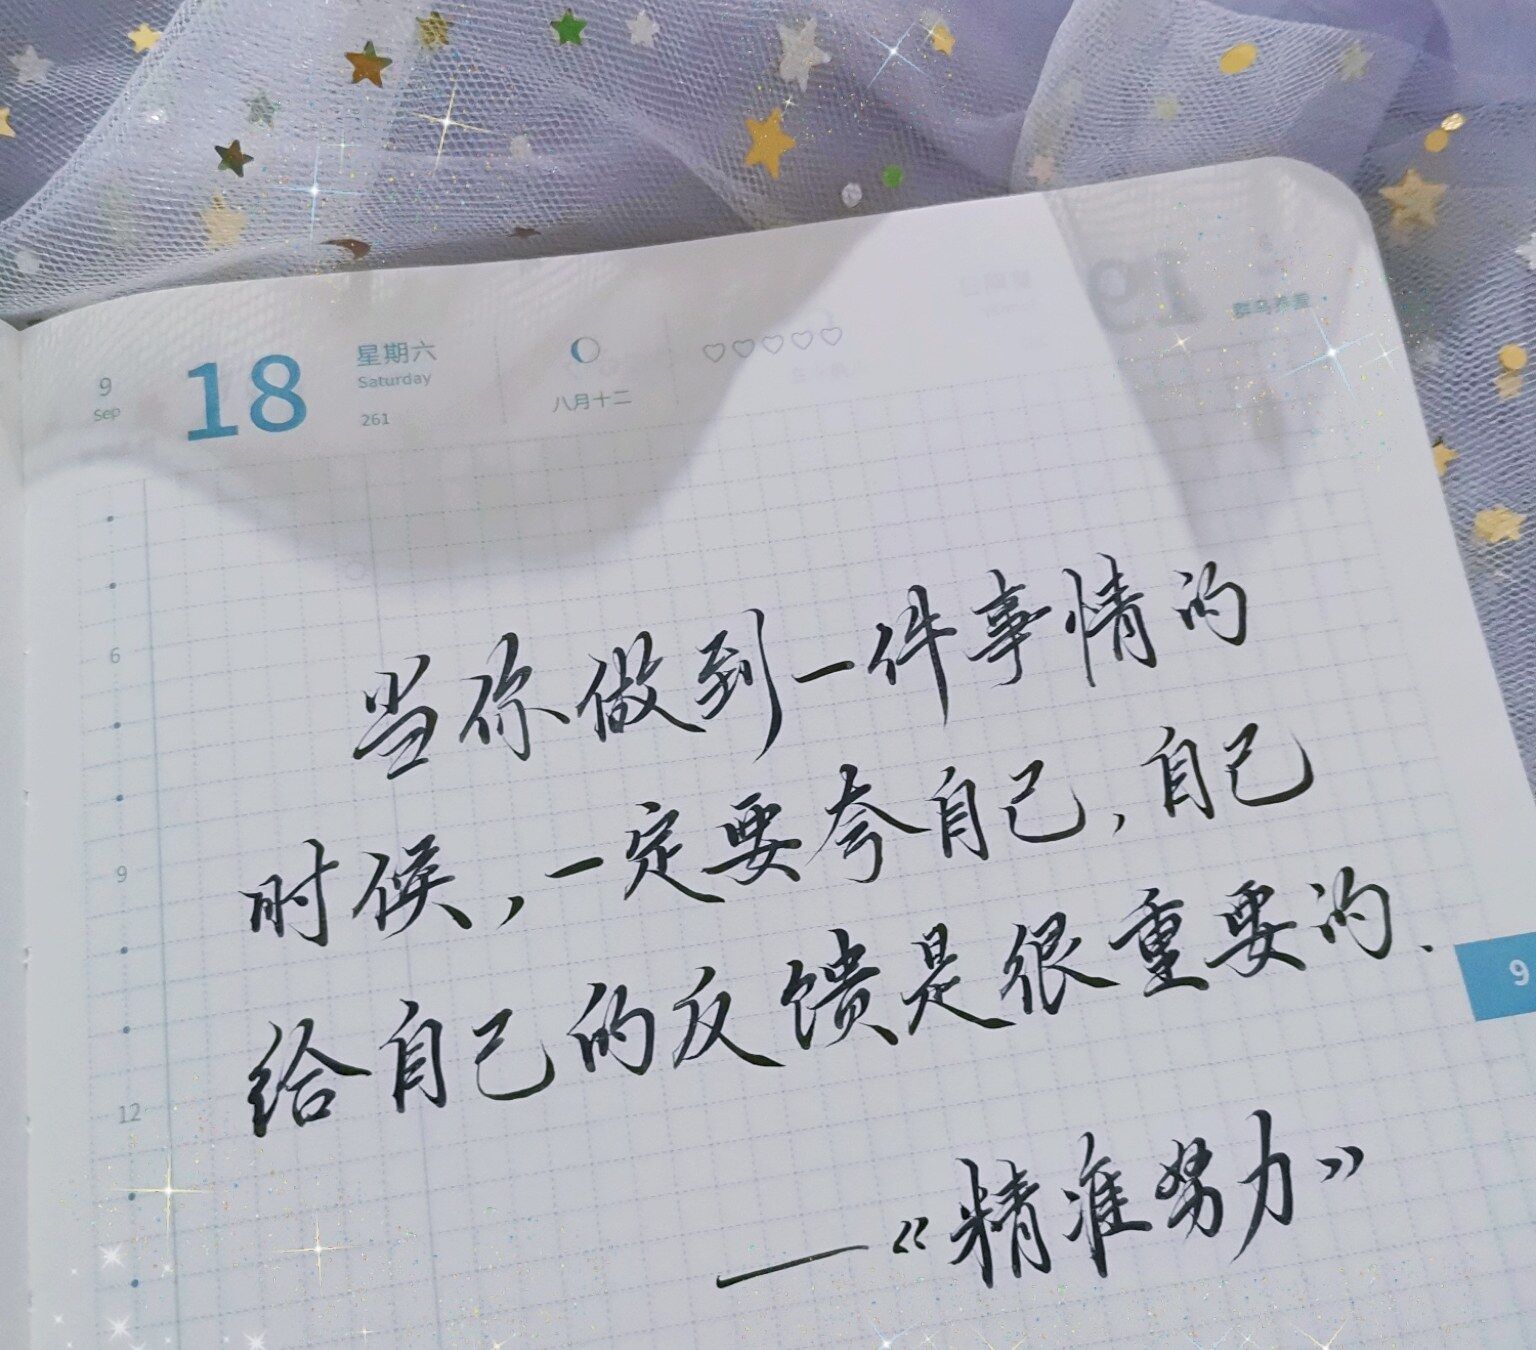 9
Sep
18
星期六
Saturday
261
八月十二
6
9
12
9
当你做到一件事情的
时候，一定要夸自己，自己
给自己的反馈是很重要的.
——《精准努力》